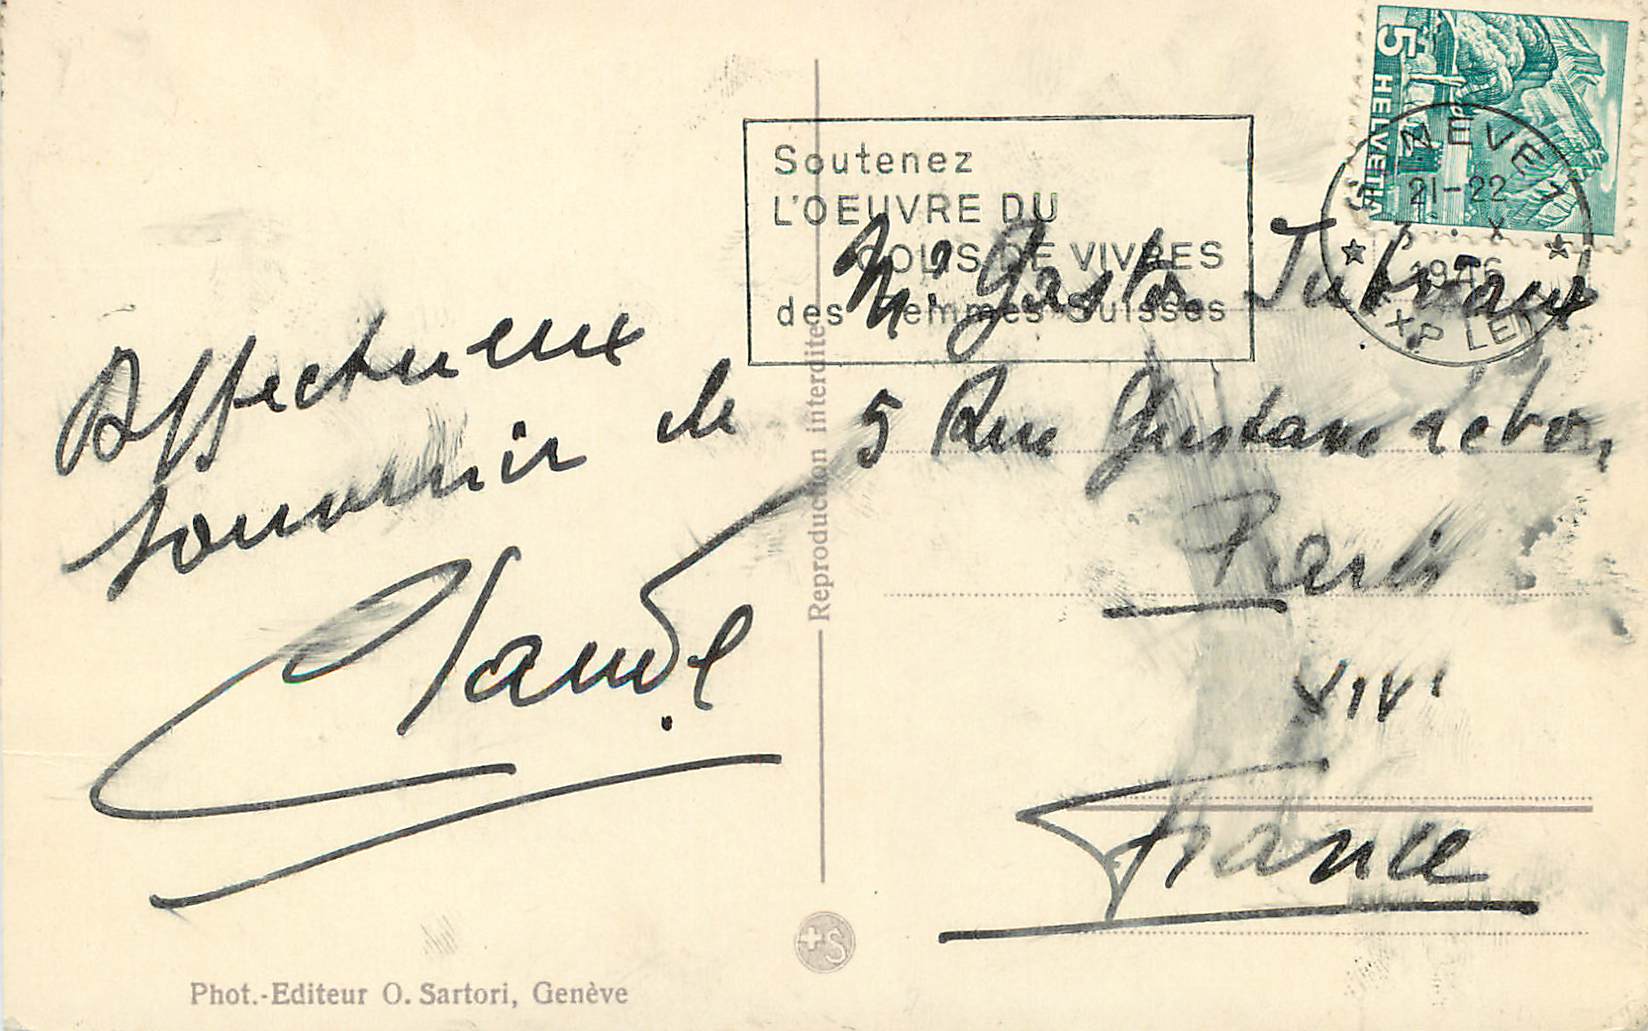 Affectueux
souvenir de
Claude
Phot.-Editeur O. Sartori, Genève
Reproduction interdite
+S
Soutenez
L'OEUVRE DU
COLIS DE VIVRES
des Femmes Suisses
5 HELVETIA
GENÈVE 1
21-22
X
1946
EXP. LET
Mr Gaston
5 Rue Gustave Lebon
Paris
XIVe
France